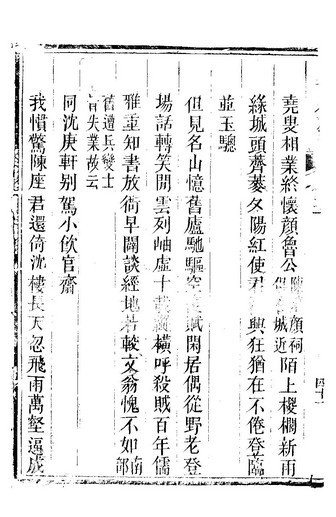 堯叟相業終懷顏魯公 顏祠
城近 陌上椶櫚新雨
絲城頭薺菱夕陽紅使君 興狂猶在不倦登臨
並玉驄
但見名山憶舊廬馳驅空 賦閒居偶從野老登
場話轉笑閒雲列岫虛十載 橫呼殺賊百年儒
雅重知書放衙早閉談經地若較文翁愧不如 南部
舊遭兵變士
皆失業故云
同沈庚軒別駕小飲官齋
我慣驚陳座君還倚沈樓長天忽飛雨萬壑逼成